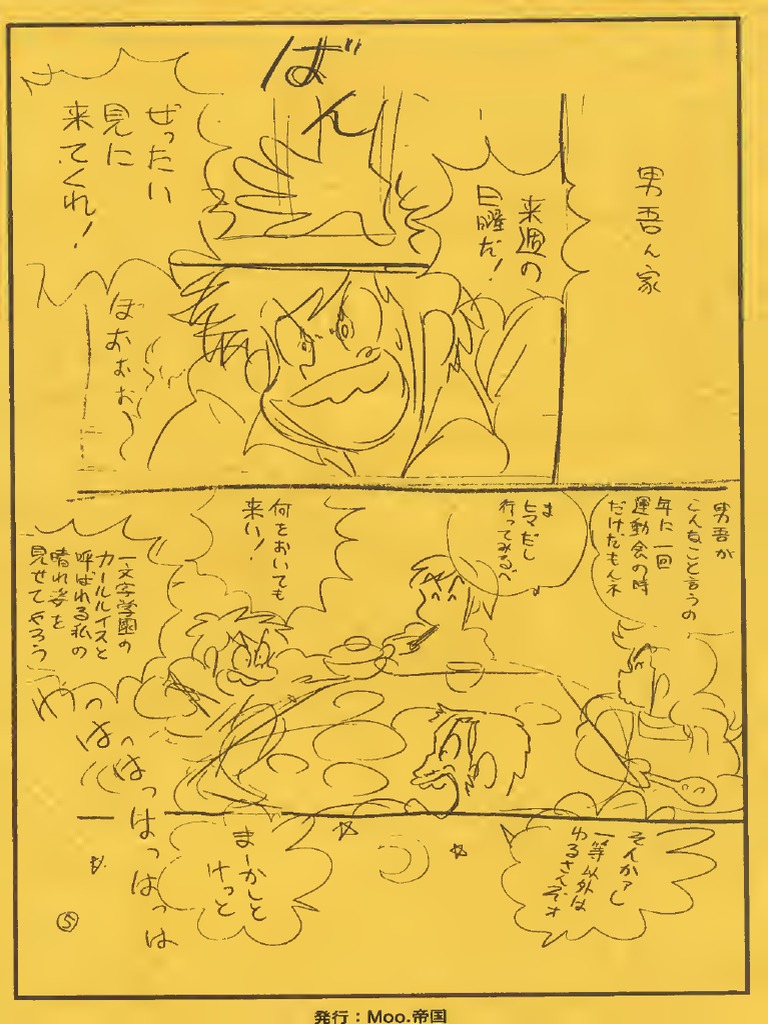 男吾ん家
ばん
来週の
日曜だ！
ぜったい
見に
来てくれ！
ぼおぉぉ
男吾が
こんなこと言うの
年に一回
運動会の時
だけだもんネ
ま
ヒマだし
行ってみるべ
何をおいても
来い！
一文字学園の
カールルイスと
呼ばれる私の
晴れ姿を
見せてやろう
わっはっはっはっはっは
一等以外は
ゆるさんぞォ
まーかしと
けっと
⑤
発行：Moo.帝国